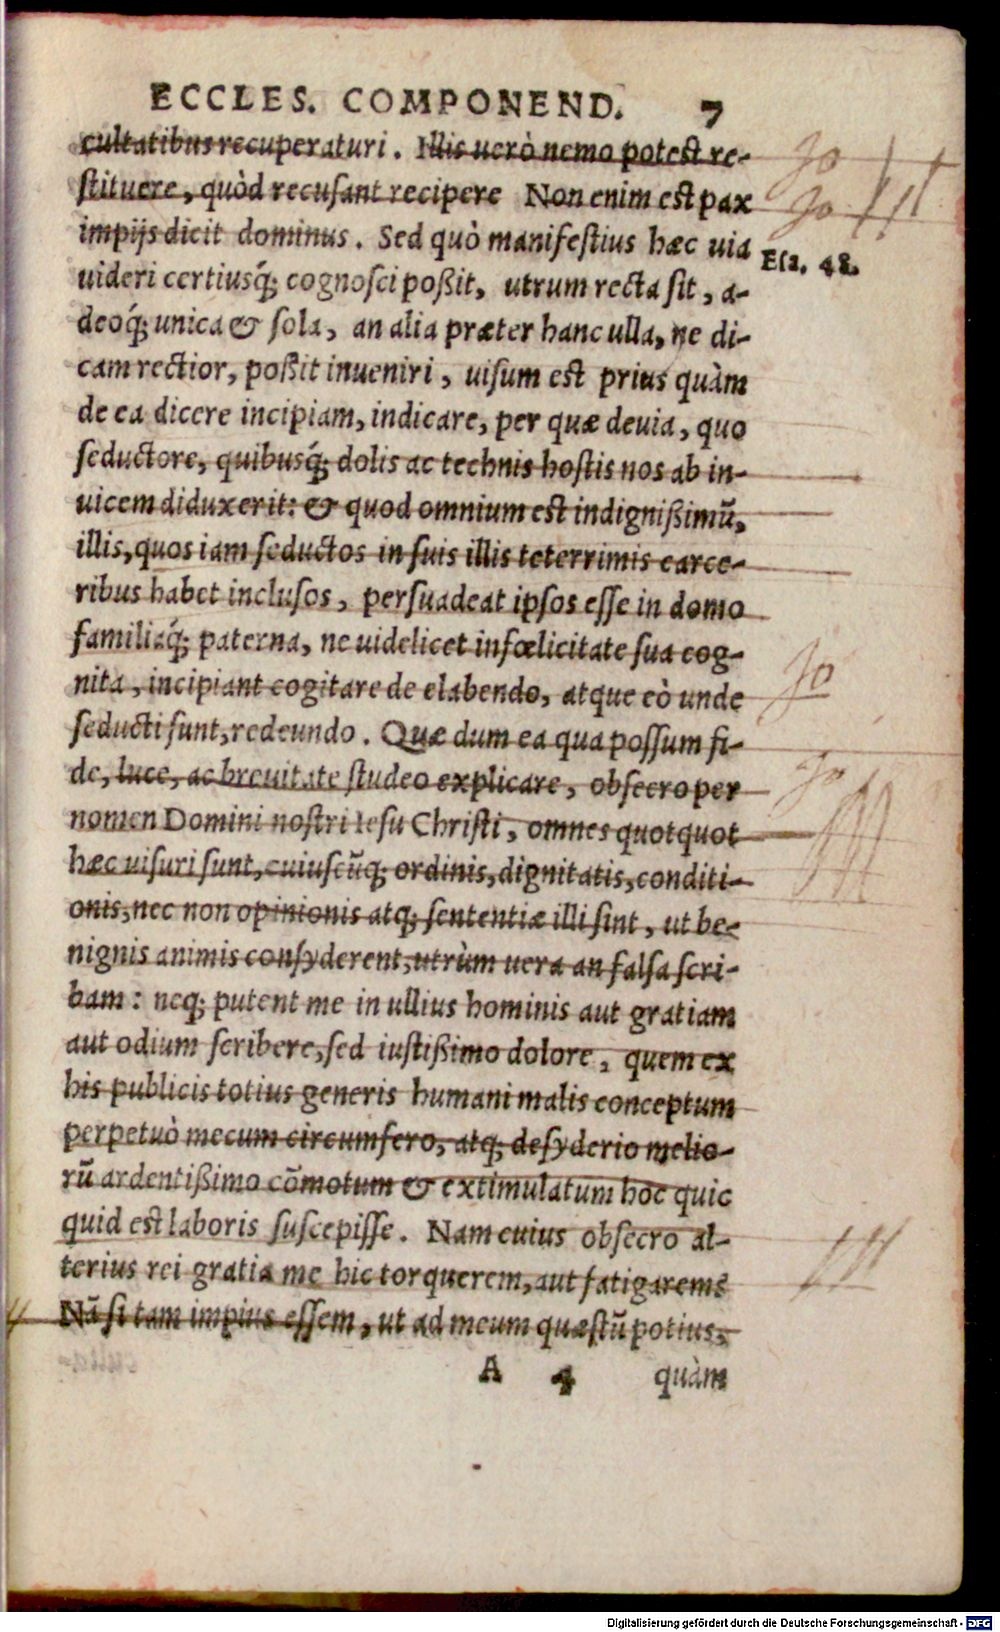 ECCLES. COMPONEND. 7
cultatibus recuperaturi. Illis uerò nemo potest re-
stituere, quòd recusant recipere Non enim est pax
impijs dicit dominus. Sed quò manifestius hæc uia
Esa. 48.
uideri certiusq́; cognosci poßit, utrum recta sit, a-
deoq́; unica & sola, an alia præter hanc ulla, ne di-
cam rectior, poßit inueniri, uisum est prius quàm
de ea dicere incipiam, indicare, per quæ deuia, quo
seductore, quibusq́; dolis ac technis hostis nos ab in-
uicem diduxerit: & quod omnium est indignißimũ,
illis, quos iam seductos in suis illis teterrimis carce-
ribus habet inclusos, persuadeat ipsos esse in domo
familiaq́; paterna, ne uidelicet infœlicitate sua cog-
nita, incipiant cogitare de elabendo, atque eò unde
seducti sunt, redeundo. Quæ dum ea qua possum fi-
de, luce, ac breuitate studeo explicare, obsecro per
nomen Domini nostri Iesu Christi, omnes quotquot
hæc uisuri sunt, cuiuscũq; ordinis, dignitatis, conditi-
onis, nec non opinionis atq; sententiæ illi sint, ut be-
nignis animis consyderent, utrùm uera an falsa scri-
bam: neq; putent me in ullius hominis aut gratiam
aut odium scribere, sed iustißimo dolore, quem ex
his publicis totius generis humani malis conceptum
perpetuò mecum circumfero, atq; desyderio melio-
rũ ardentißimo cōmotum & extimulatum hoc quic
quid est laboris suscepisse. Nam cuius obsecro al-
terius rei gratia me hic torquerem, aut fatigarem?
Nā si tam impius essem, ut ad meum quæstũ potius,
A 4 quàm
Digitalisierung gefördert durch die Deutsche Forschungsgemeinschaft - DFG